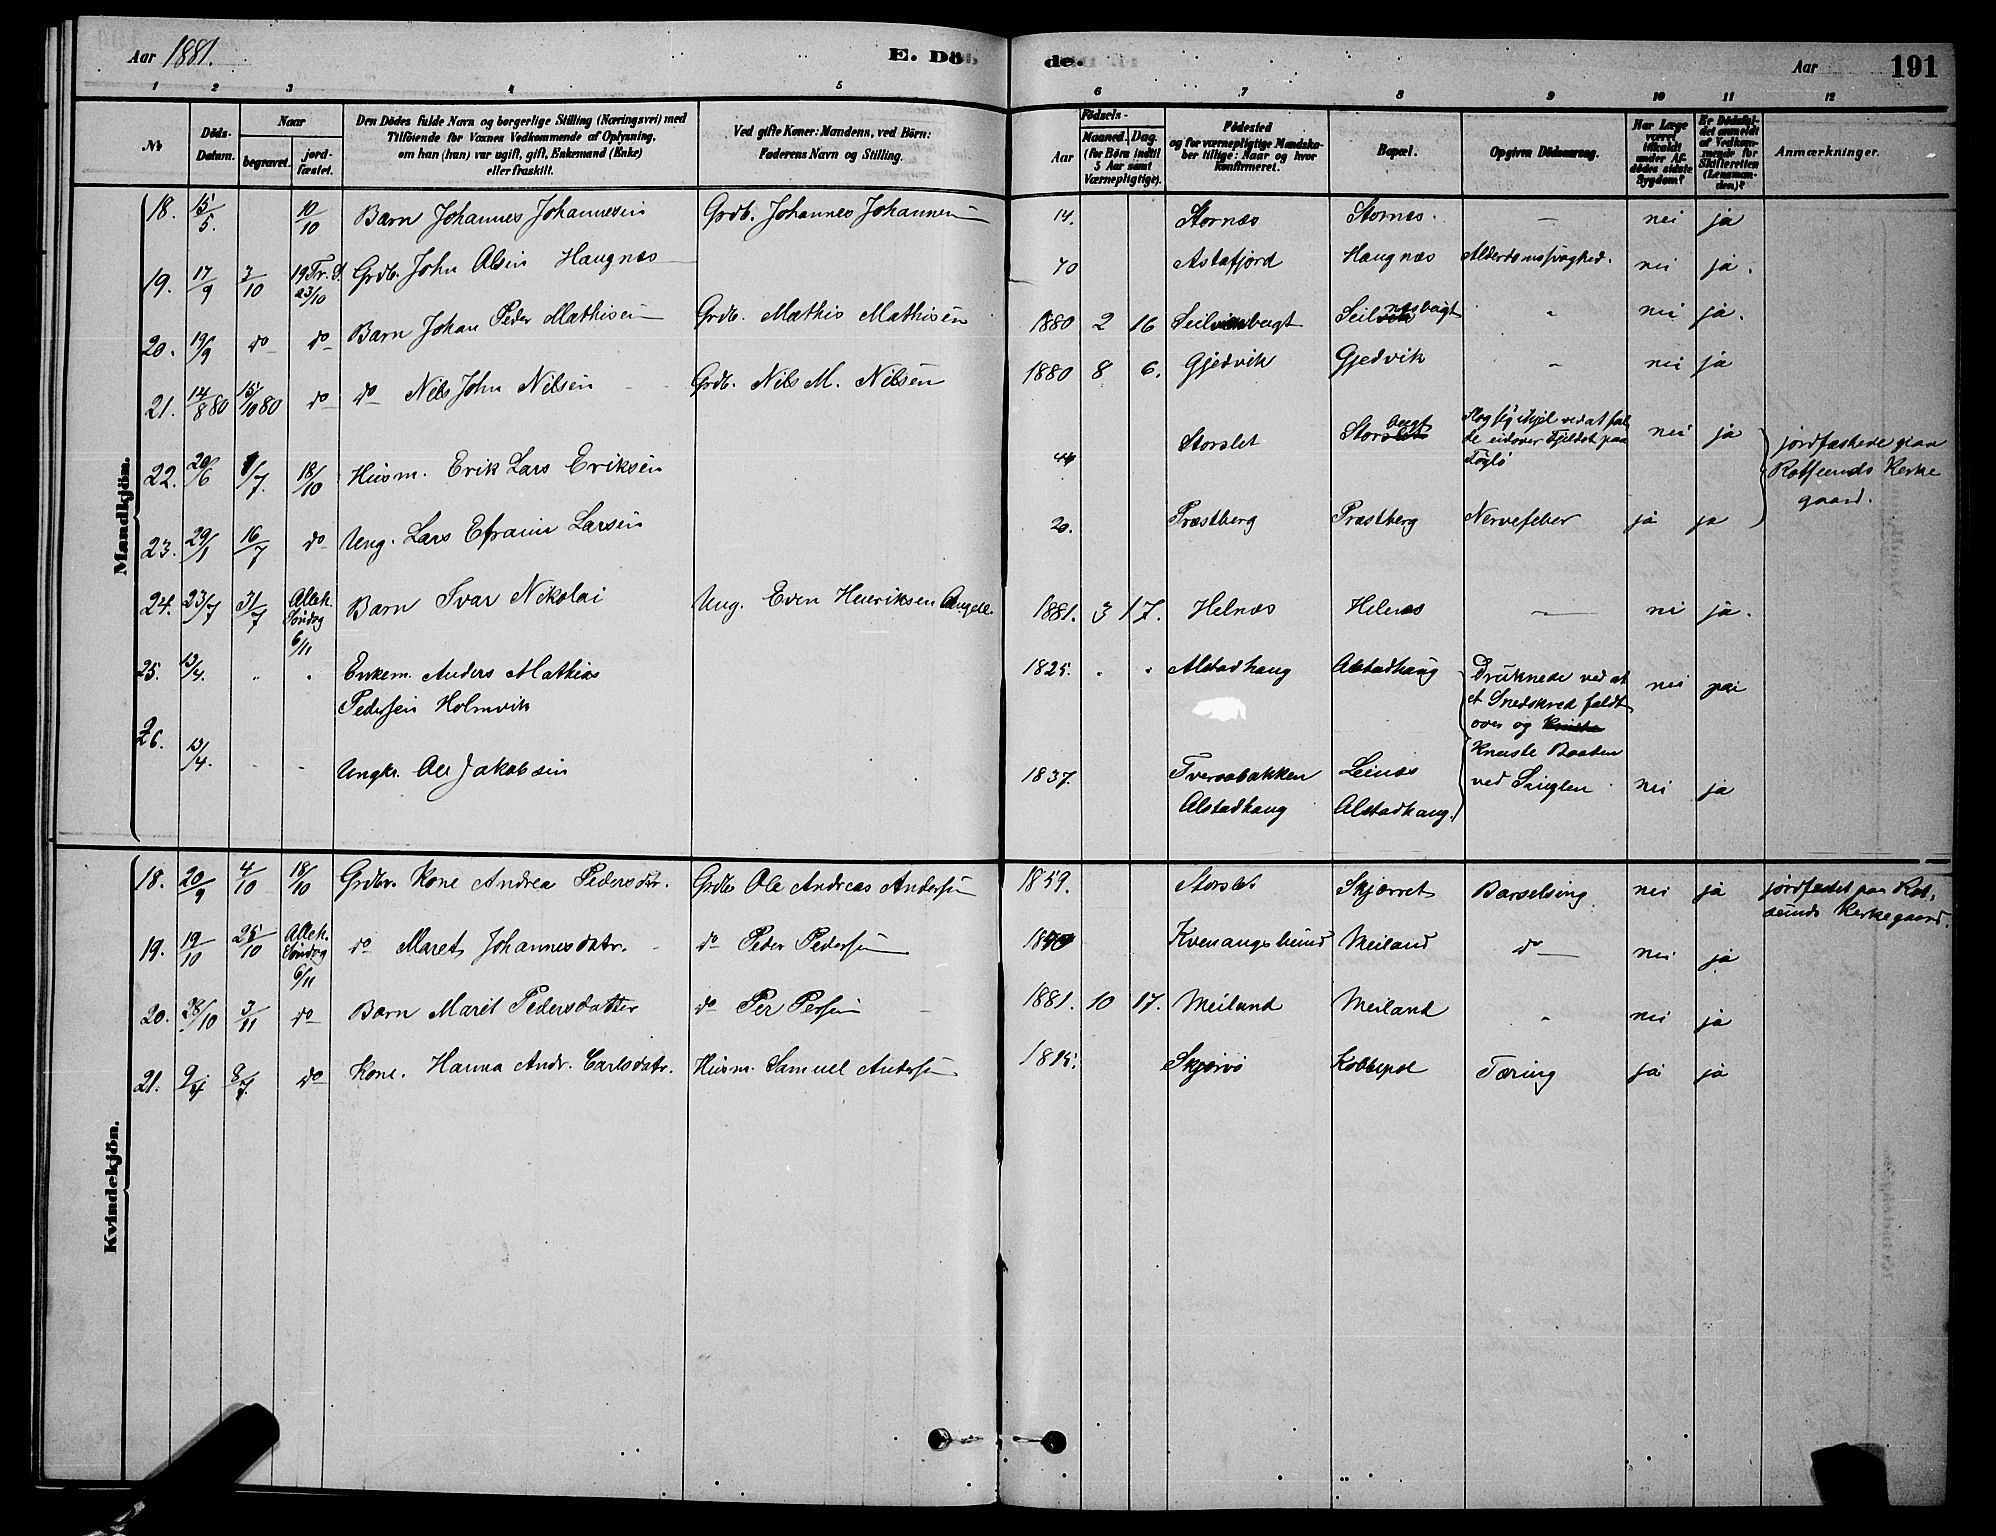 Aar 1881.
E. Döde.
Aar
191
1 2 3 4 5 6 7 8 9 10 11 12
No
Döds-Datum.
Naar
begravet.
jordfæstet.
Den Dödes fulde Navn og borgerlige Stilling (Næringsvei) med
Tilföiende for Voxnes Vedkommende af Oplysning,
om han (hun) var ugift, gift, Enkemand (Enke)
eller fraskilt.
Ved gifte Koner: Mandens, ved Börn:
Faderens Navn og Stilling.
Födsels-
Aar
Maaned. Dag.
(for Börn indtil
5 Aar samt
Værnepligtige).
Födested
og for værnepligtige Mandskaber tillige: Naar og hvor
konfirmeret.
Bopæl.
Opgiven Dödsaarsag.
Har Læge
været
tilkaldt
under Afdödes sidste
Sygdom?
Er Dödsfaldet anmeldt
af Vedkommende for
Skifteretten
(Lensmanden)?
Anmærkninger.
Mandkjön.
18. 15/5. 10/10 Barn Johannes Johannesen Grdb. Johannes Johannesen 14. Stornæs Stornæs. - nei ja
19. 17/9 3/10 19 Tr. S. 23/10 Grdb. John Olsen Haugnæs 70 Astafjord Haugnæs Alderdomssvaghed. nei ja.
20. 19/9 do do Barn Johan Peder Mathisen Grdb. Mathis Mathisen 1880 2 16 nei ja.
21. 14/8 80 15/10 80 do do Nils John Nilsen Grdb. Nils M. Nilsen 1880 8 6. Gjedvik Gjedvik - nei ja
22. 20/6 1/7. 18/10 Husm. Erik Lars Eriksen Storslet Slog sig ihjel ved at falde Fjeldet paa nei ja jordfæstede paa
Rotsunds Kirke
gaard.
23. 29/1 16/7 do Ung. Lars Efraim Larsen 20. Præstberg Præstberg Nervefeber ja ja
24. 23/7 31/7 Alleh. Söndag 6/11 Barn Ivar Nikolai Ung. Even Henriksen Angell 1881. 3 17. Helnæs Helnæs - nei ja.
25. 13/4. " " Enkem. Anders Mathias
Pedersen Holmvik 1825. " " Alstadhaug Alstadhaug Druknede ved at
et Snedskred faldt
over og
knuste Baaden
ved nei
26. 13/4. - - Ungkr. Ole Jakobsen 1837. Tveraabakken
Alstadhaug Leinæs
Alstadhaug. nei ja
Kvindekjön.
18. 20/9 4/10 18/10 Grdbr. Kone Andrea Pedersdtr. Grdbr Ole Andreas Andersen 1859. Storslet Skjærret Barselseng nei ja jordfæstet paa Rotsunds Kirkegaard.
19. 19/10 25/10 Alleh. Söndag 6/11 do Maret Johannesdatr. do Peder Pedersen Kvenangs Meiland do nei ja
20. 28/10 3/11 do Barn Marit Pedersdatter do Per Persen 1881. 10 17. Meiland Meiland " nei ja
21. 8/7. do Kone. Hanna Andr. Carlsdatr. Husm. Samuel Andersen Skjærvö Tæring ja ja